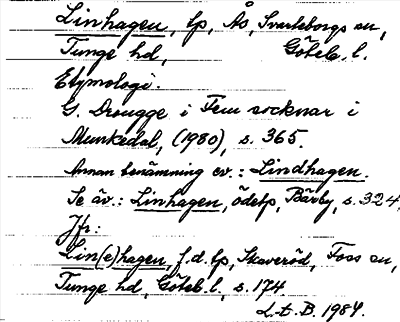 Linhagen, lp, Ås, Svarteborgs sn,
Tunge hd, Göteb. l.
Etymologi.
G. Drougge i Fem socknar i
Munkedal, (1980), s. 365.
Annan benämning ev.: Lindhagen.
Se äv.: Linhagen, ödetp, Bärby, s. 324.
Jfr:
Lin(e)hagen, f.d. lp, Skaveröd, Foss sn,
Tunge hd, Göteb. l., s. 174
L.t.B. 1984.